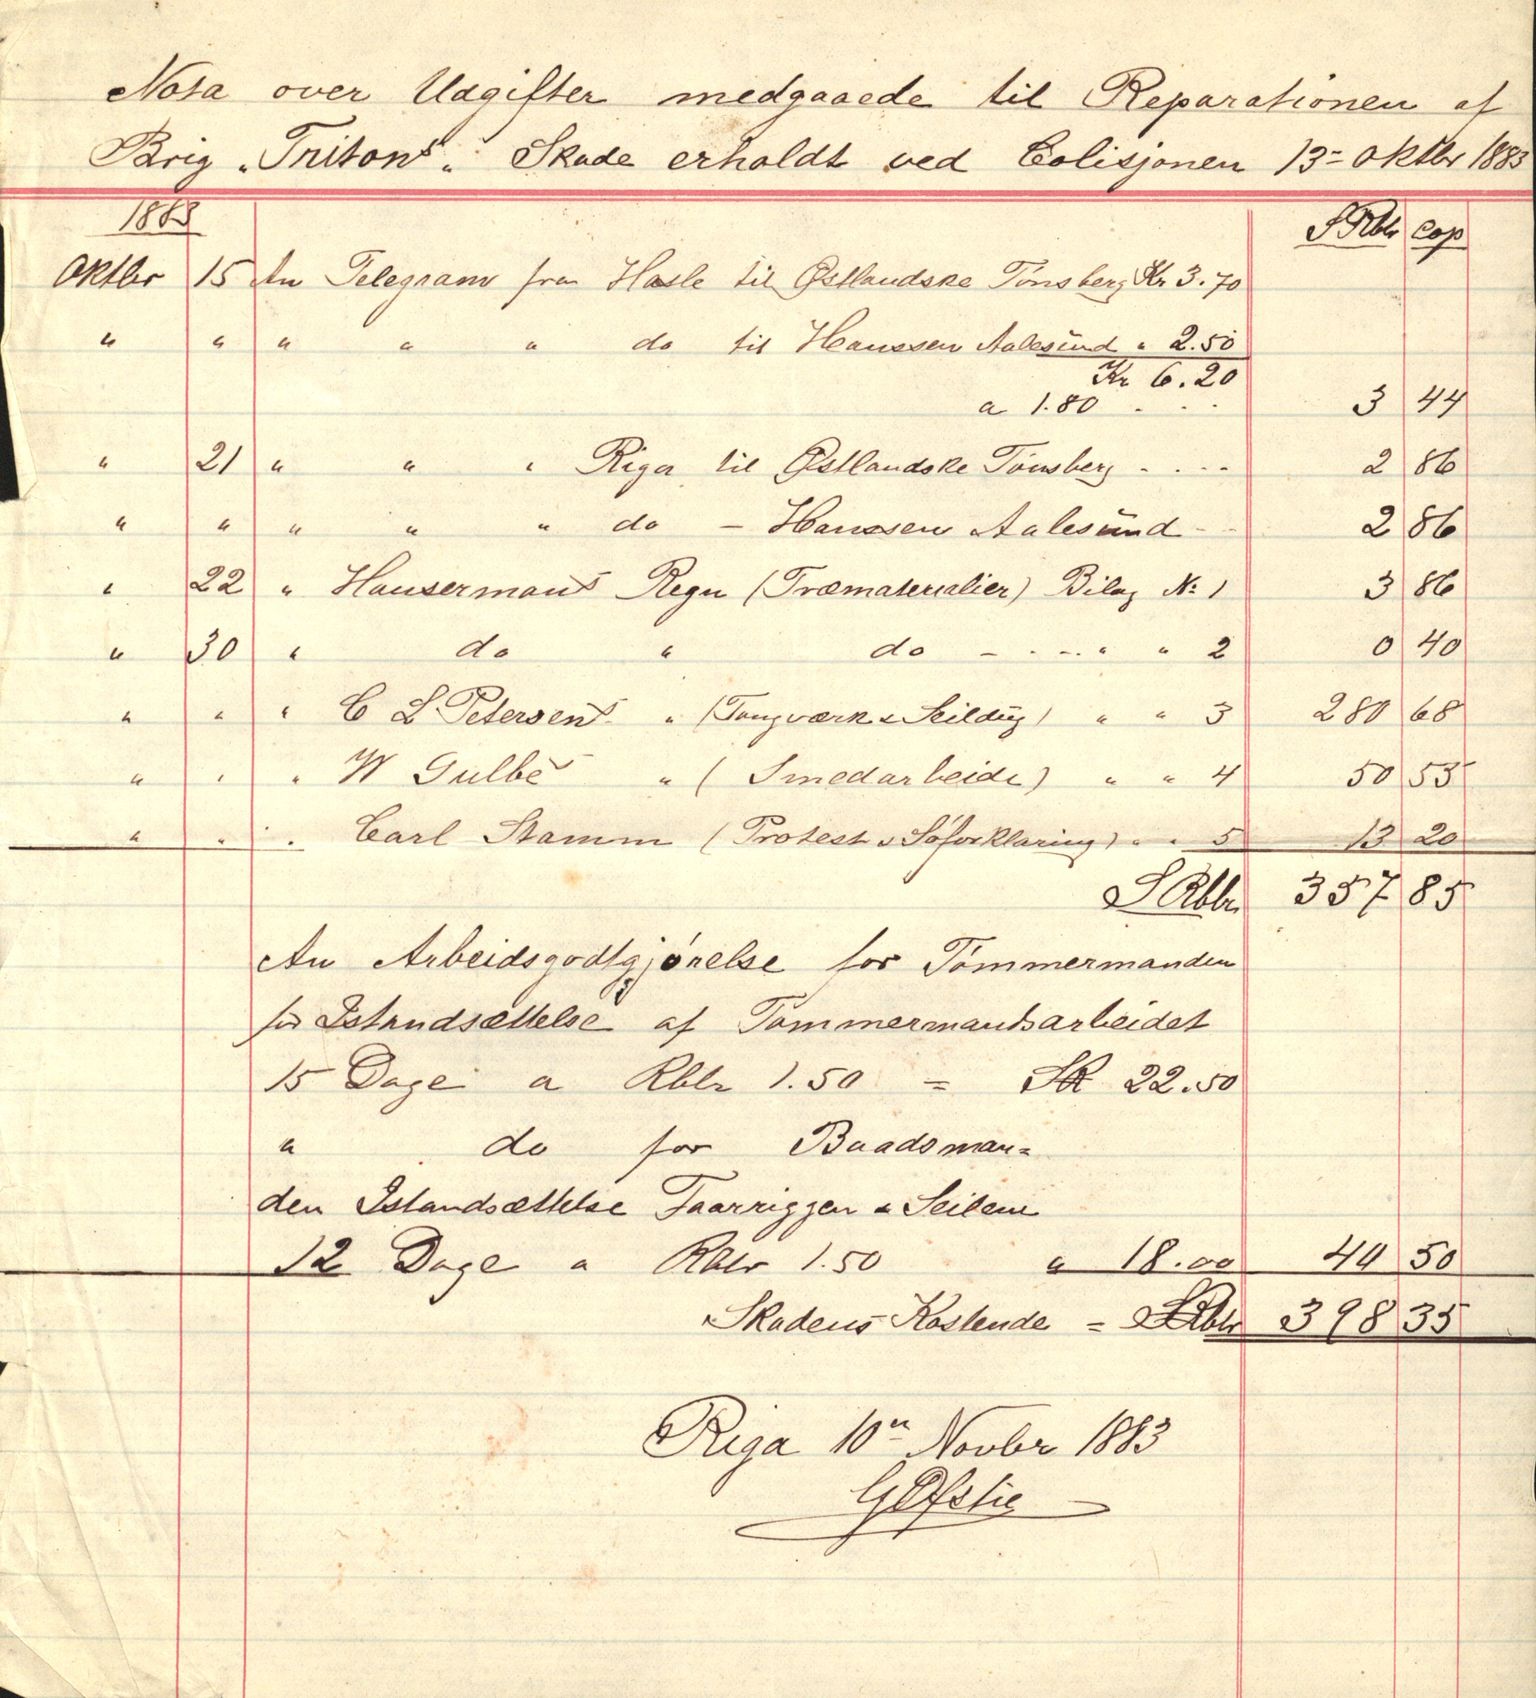 Nota over Udgifter medgaaede til Reparationen af
Brig "Triton's" Skade erholdt ved Colisjonen 13= Oktbr 1883
1883 S Rblr Cop
Oktbr 15 An Telegram fra Hasle til Østlandske Tønsberg Kr 3.70
" " " " " do til Hanssen Aalesund " 2.50
Kr 6.20
a 1.80 - - - 3 44
" 21 " " " Riga til Østlandske Tønsberg - - - - 2 86
" " " " " do - Hanssen Aalesund - - 2 86
" 22 " Hausermans Regn (Træmaterialier) Bilag No 1 3 86
" 30 " do " do - - - - " " 2 0 40
" " " C L Petersens " (Tougværk & Seildug) " " 3 280 68
" " " W Gulbe " (Smedarbeide) " " 4 50 55
" " " Carl Stamm (Protest & Søforklaring) " " 5 13 20
S Rblr 357 85
An Arbeidsgodtgjørelse for Tømmermanden
for Istandsættelse af Tømmermandsarbeidet
15 Dage a Rblr 1.50 = SR 22.50
" do for Baadsman=
den Istandsættelse Taarriggen & Seilene
12 Dage a Rblr 1.50 " 18.00 40 50
Skadens Kostende = S Rblr 398 35
Riga 10n Novbr 1883
G Øfstie